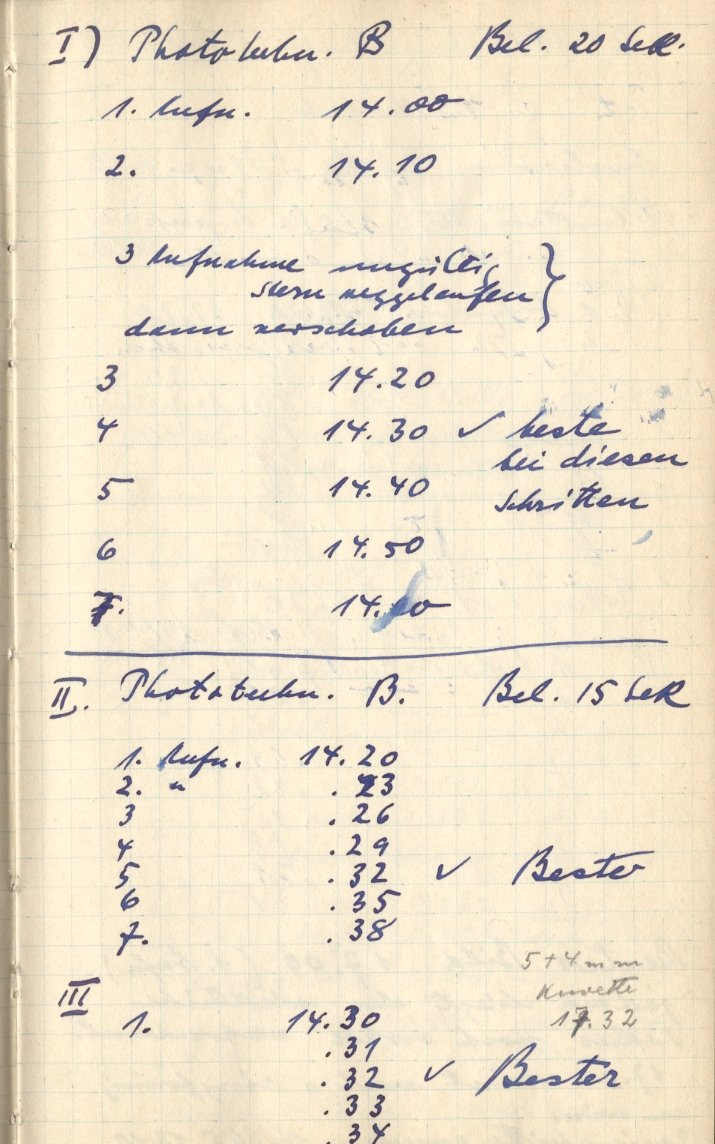 I) Phototechn. B Bel. 20 Sek.
1. Aufn. 14.00
2. 14.10
3 Aufnahme ungültig
Stern weggelaufen
dann verschoben
3 14.20
4 14.30 ✓ beste
bei diesen
5 14.40 Schritten
6 14.50
7. 14.
II. Phototechn. B. Bel. 15 Sek
1. Aufn. 14.20
2. " .23
3 .26
4 .29
5 .32 ✓ Bester
6 .35
7. .38
5+4 mm
Kuvette
17.32
III
1. 14.30
.31
.32 ✓ Bester
.33
.34